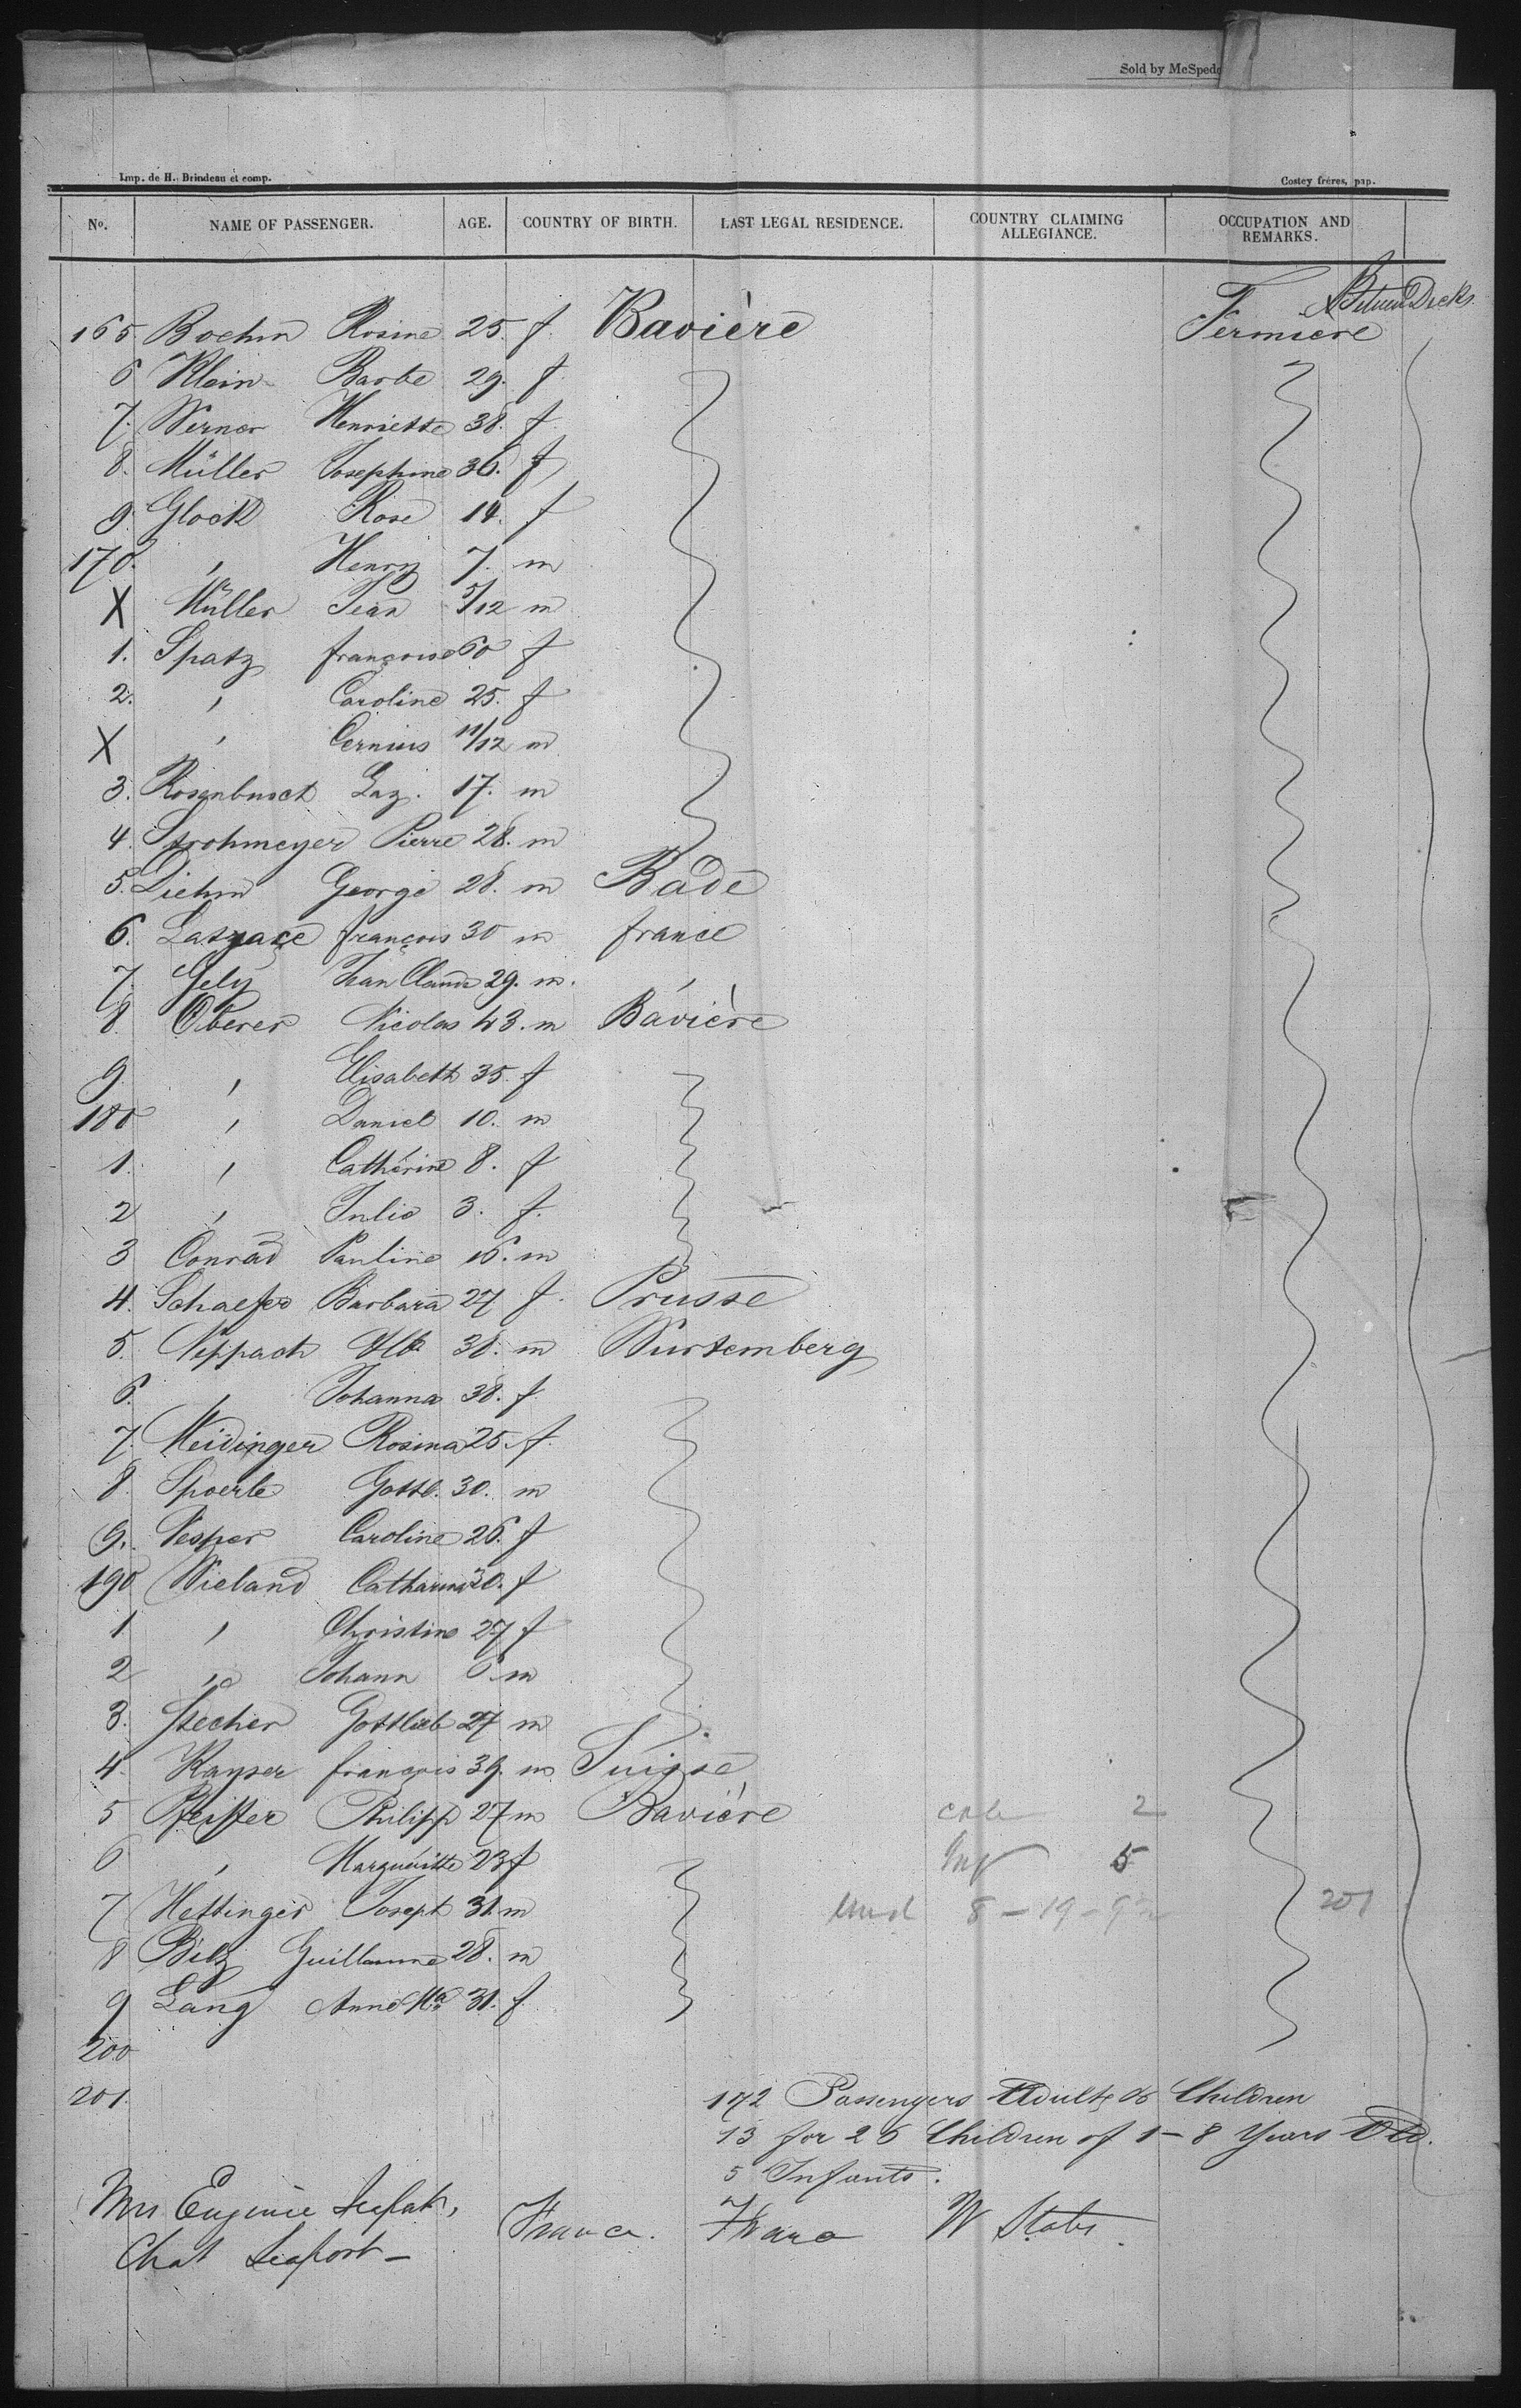 Sold by McSped
Imp. de H. Brindeau et comp. Costey frères, pap.
No. NAME OF PASSENGER. AGE. COUNTRY OF BIRTH. LAST LEGAL RESIDENCE. COUNTRY CLAIMING ALLEGIANCE. OCCUPATION AND REMARKS.
Between Decks
165 Boehm Rosine 25. f. Bavière Fermiere
6 Klein Barbe 29. f.
7. Werner Henriette 38. f.
8. Müller Josephine 36. f
9. Glock Rose 14. f
170. " Henry 7. m
X Müller Jean 5/12 m
1. Spatz françoise 60 f
2. " Caroline 25. f
X " 11/12 m
3. Rosenbusch Laz. 17. m
4. Strohmeyer Pierre 28. m
5. Diehm George 28. m Bade
6. françois 30 m france
7. Gely Jean Claude 29. m. "
8 Oberer Nicolas 43. m Bavière
9 " Elisabeth 35. f
180 " Daniel 10. m
1. " Catherine 8. f
2 " Julie 3. f.
3 Conrad Pauline 16. m
4. Schaefer Barbara 27 f. Prusse
5. Neppach 38. m Wurtemberg
6. " Johanna 38. f.
7. Meidinger Rosina 25. f.
8. Spoerle Gottl. 30. m
9. Vesper Caroline 26. f
190 Wieland Catharina 30. f
1 " Christine 27 f
2 " Johann 6 m
3. Stecher Gottlieb 27 m
4 Kayser françois 39. m Suisse
5 Pfeiffer Philipp 27 m Bavière 2
6 " Marguéritte 23 f Inf 5
7 Hettinger Joseph 31. m 8 – 19 – 201
8 Bilz Guillaume 28. m
9 Lang Anne Ma 31. f.
200
201.
172 Passengers Adults & Children
13 for 26 Children of 1 – 8 Years Old.
5 Infants.
Mrs Eugenie France. N States
Chat